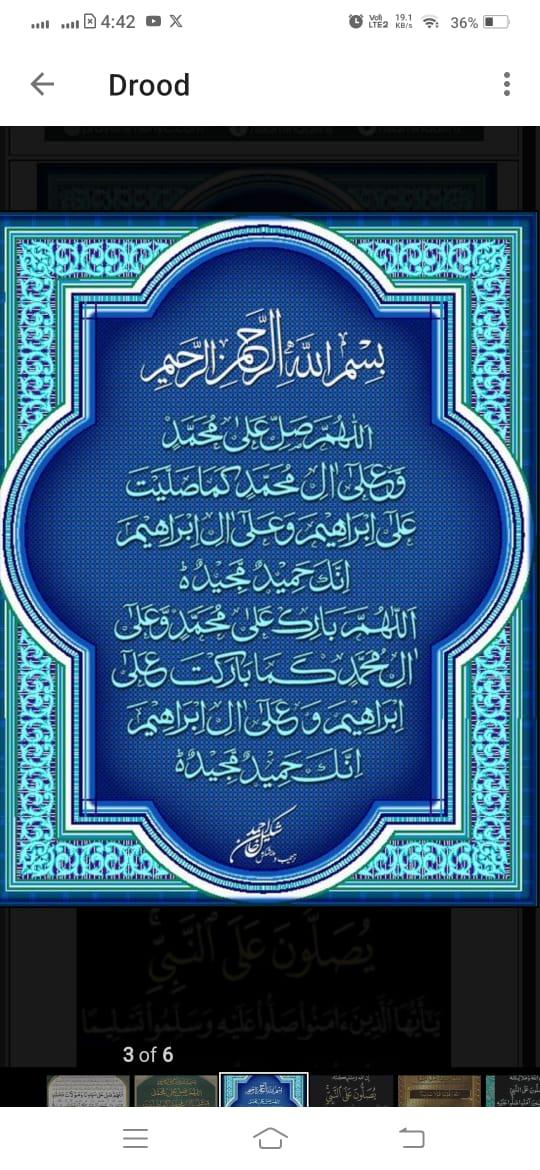 4:42
Vo))
LTE2
19.1
KB/s
36%
Drood
بِسْمِ اللّٰهِ الرَّحْمٰنِ الرَّحِيْمِ
اَللّٰهُمَّ صَلِّ عَلٰى مُحَمَّدٍ
وَّعَلٰٓى اٰلِ مُحَمَّدٍ كَمَا صَلَّيْتَ
عَلٰٓى اِبْرَاهِيْمَ وَعَلٰٓى اٰلِ اِبْرَاهِيْمَ
اِنَّكَ حَمِيْدٌ مَّجِيْدٌ ؕ
اَللّٰهُمَّ بَارِكْ عَلٰى مُحَمَّدٍ وَّعَلٰٓى
اٰلِ مُحَمَّدٍ كَمَا بَارَكْتَ عَلٰٓى
اِبْرَاهِيْمَ وَعَلٰٓى اٰلِ اِبْرَاهِيْمَ
اِنَّكَ حَمِيْدٌ مَّجِيْدٌ ؕ
يُصَلُّونَ عَلَى ٱلنَّبِيِّ ۚ
يَٰٓأَيُّهَا ٱلَّذِينَ ءَامَنُوا۟ صَلُّوا۟ عَلَيْهِ وَسَلِّمُوا۟ تَسْلِيمًا
3 of 6